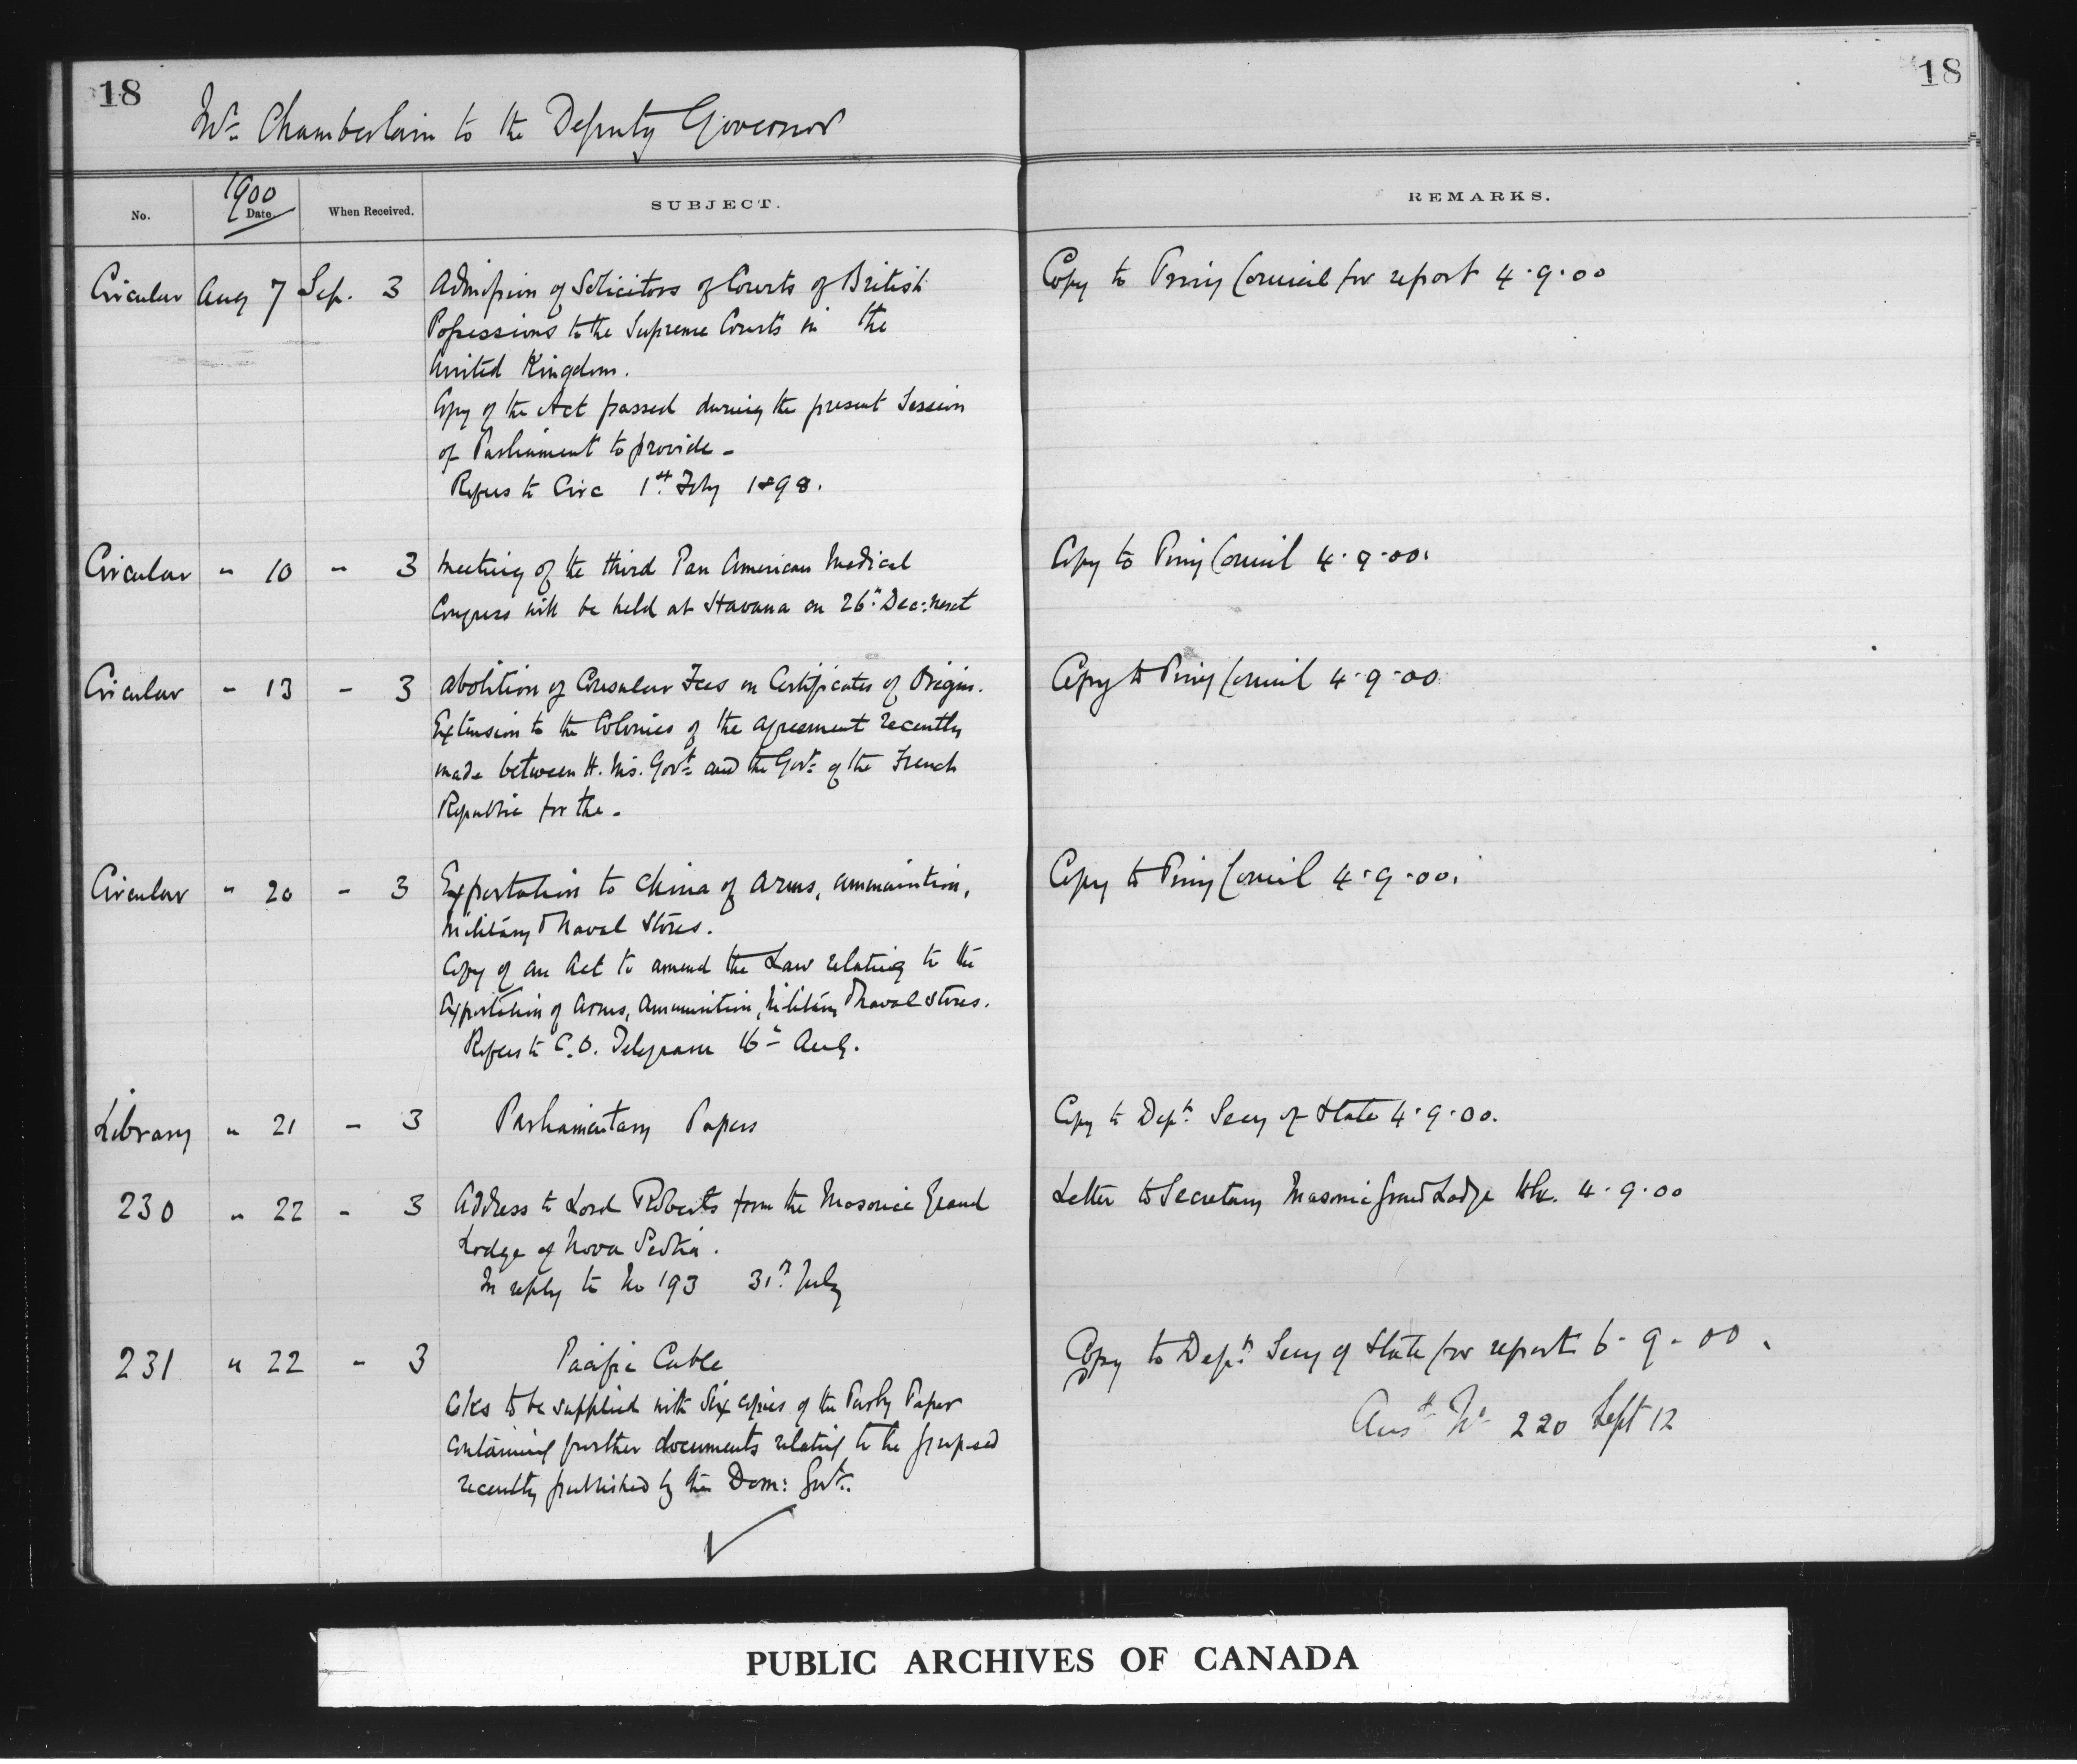 18
18
Mr. Chamberlain to the Deputy Governor
No.
1900
Date
When Received.
SUBJECT.
REMARKS.
Circular Aug 7 Sep. 3 Admission of Solicitors of Courts of British Copy to Privy Council for report 4.9.00
Possessions to the Supreme Courts in the
United Kingdom.
Copy of the Act passed during the present Session
of Parliament to provide -
Refers to Circ 1st July 1898.
Circular " 10 - 3 Meeting of the third Pan American Medical Copy to Privy Council 4.9.00.
Congress will be held at Havana on 26th Dec: next
Circular - 13 - 3 Abolition of Consular Fees on Certificates of Origin. Copy to Privy Council 4.9.00
Extension to the Colonies of the agreement recently
made between H. Ms. Govt. and the Govt. of the French
Republic for the -
Circular " 20 - 3 Exportation to China of Arms, ammunition, Copy to Privy Council 4.9.00.
Military & Naval Stores.
Copy of an Act to amend the Law relating to the
Exportation of Arms, Ammunition, Military & Naval Stores.
Refers to C.O. Telegram 16th Aug.
Library " 21 - 3 Parliamentary Papers Copy to Dept. Secy of State 4.9.00.
230 " 22 - 3 Address to Lord Roberts from the Masonic Grand Letter to Secretary Masonic Grand Lodge 4.9.00
Lodge of Nova Scotia.
In reply to No 193 31st July
231 " 22 - 3 Pacific Cable Copy to Dept. Secy of State for report 6-9-00.
Asks to be supplied with Six copies of the Parly Paper
Ansd No 220 Sept 12
containing further documents relating to the proposed
recently published by the Dom: Govt.
PUBLIC ARCHIVES OF CANADA